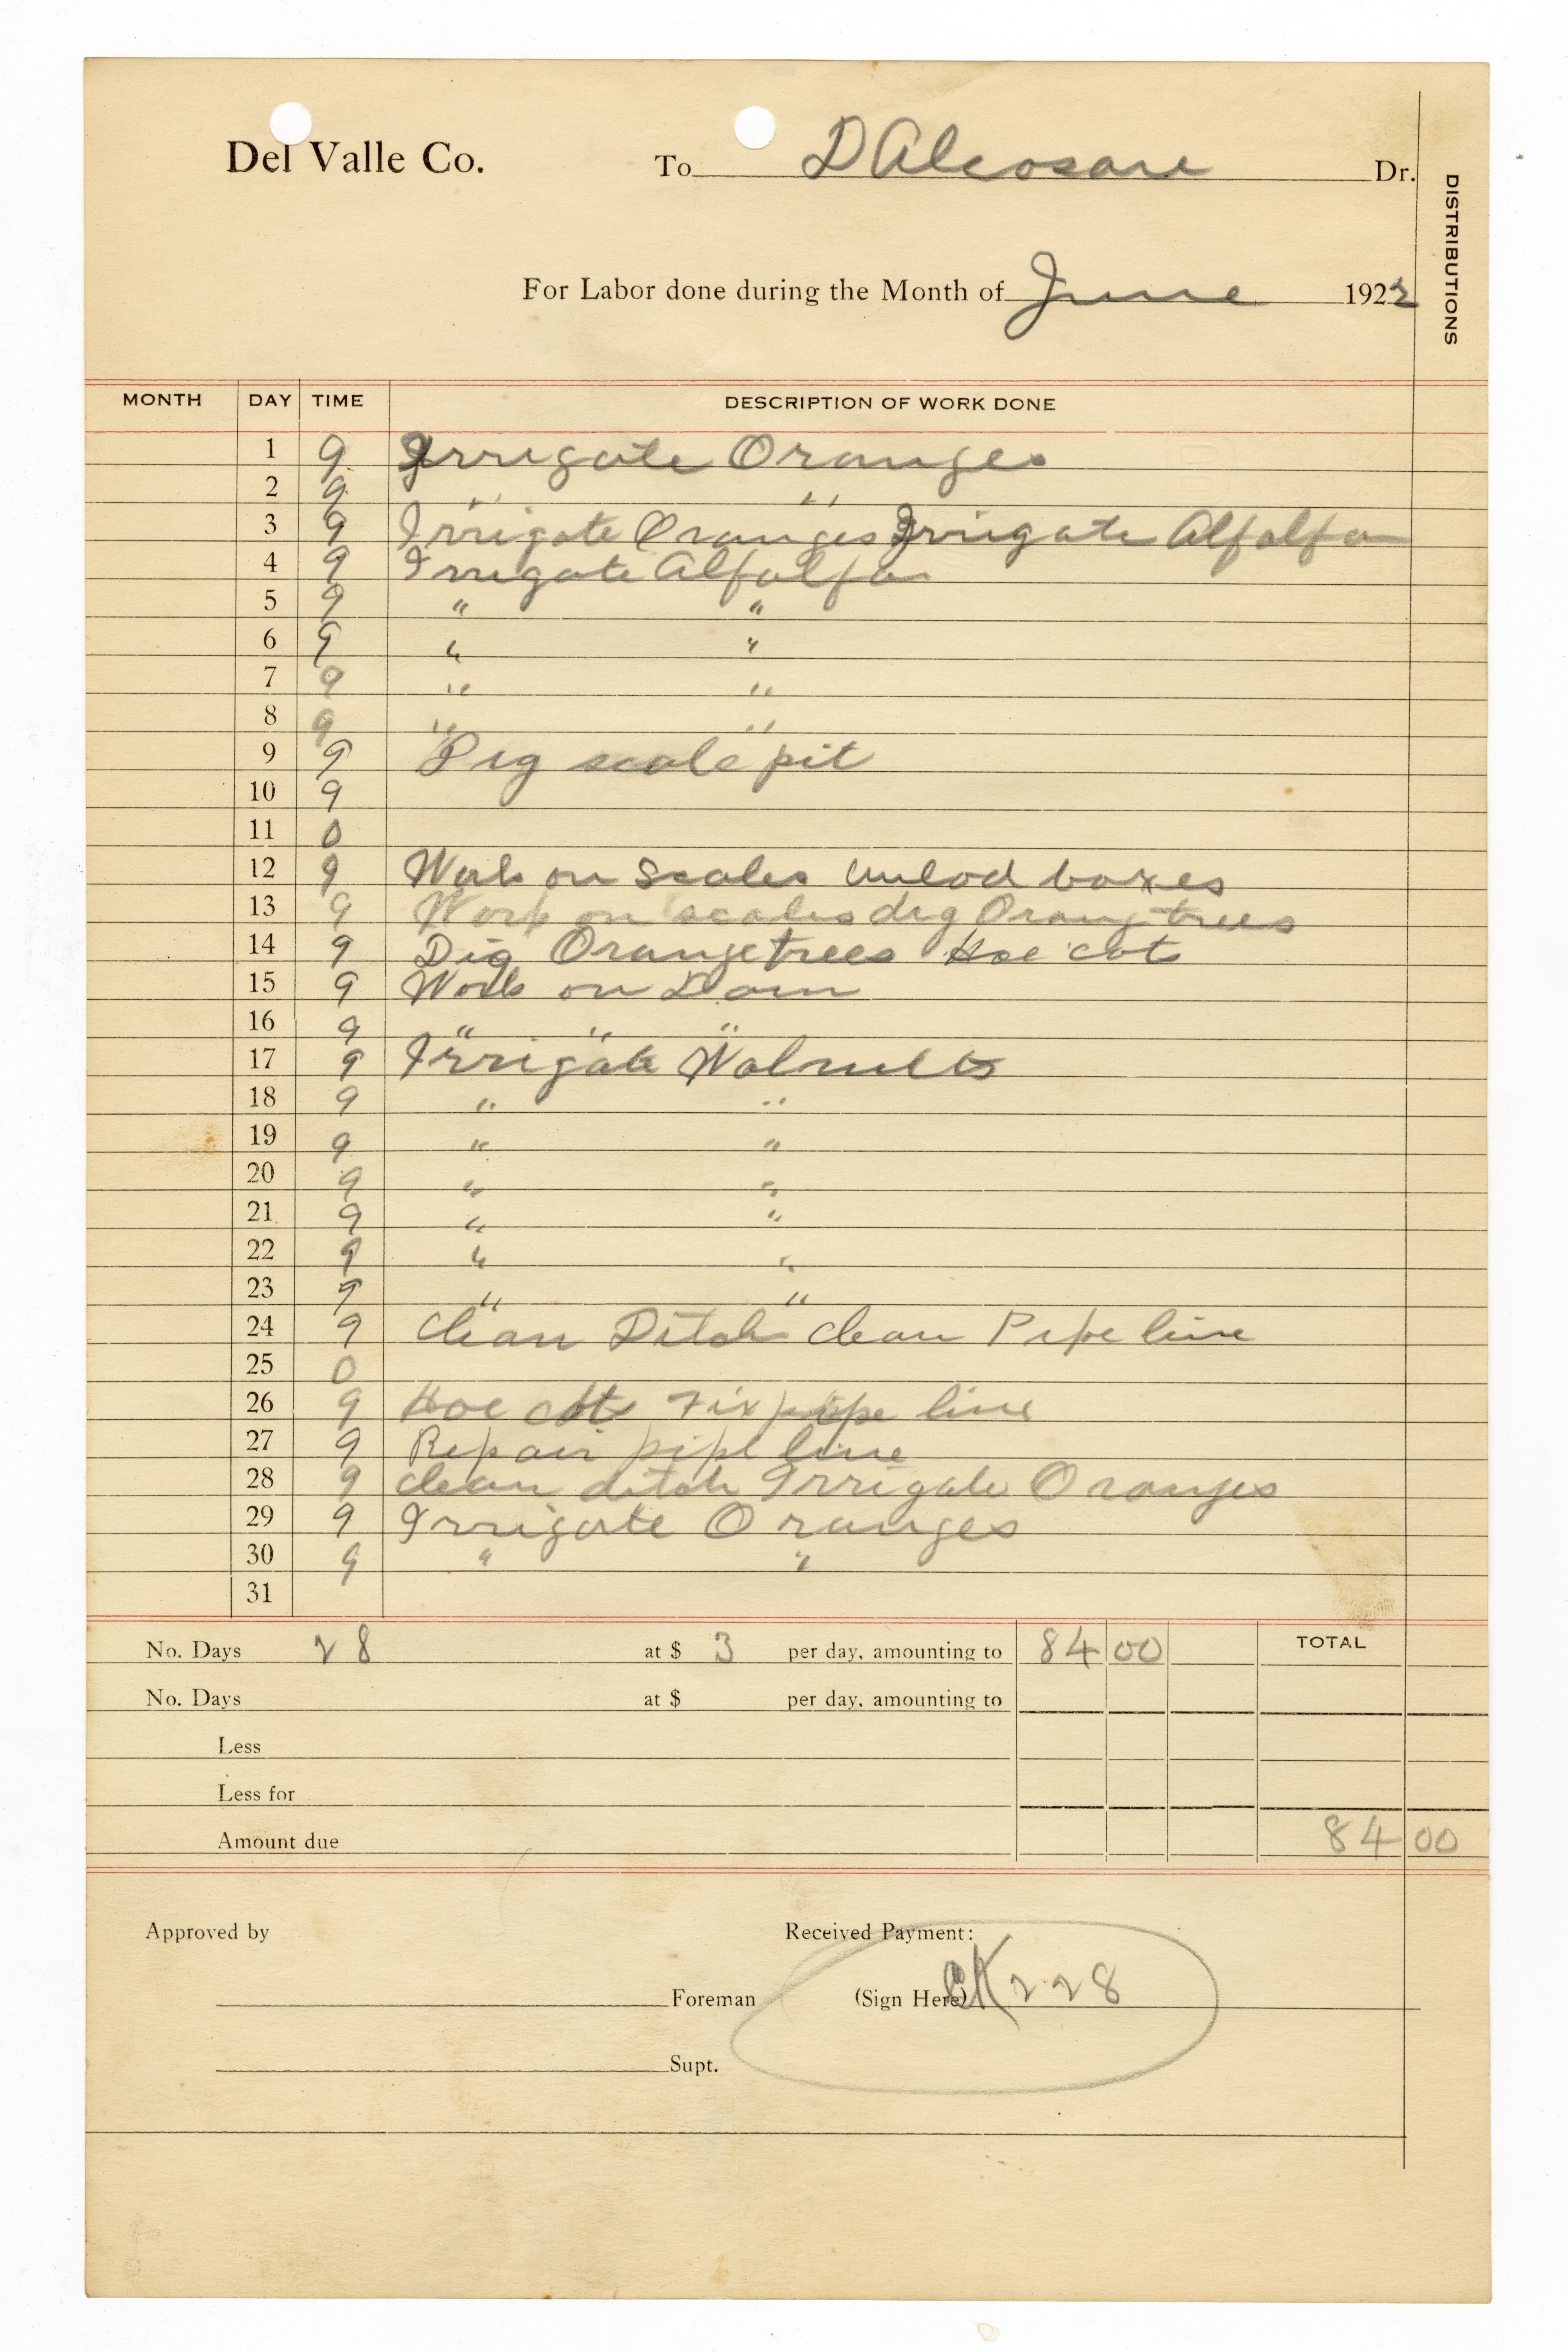 Del Valle Co. To D Alcosare Dr.
DISTRIBUTIONS
For Labor done during the Month of June 1922
MONTH DAY TIME DESCRIPTION OF WORK DONE
1 9 Irrigate Oranges
2 9 " "
3 9 Irrigate Oranges Irrigate Alfalfa
4 9 Irrigate Alfalfa
5 9 " "
6 9 " "
7 9 " "
8 9 " "
9 9 Dig scale pit
10 9
11 0
12 9 Work on Scales Unlod boxes
13 9 Work on scales dig Orang trees
14 9 Dig Orange trees Hoe cots
15 9 Work on Dam
16 9 " " "
17 9 Irrigate Walnuts
18 9 " "
19 9 " "
20 9 " "
21 9 " "
22 9 " "
23 9 " "
24 9 Clean Ditch clean Pipe line
25 0
26 9 Hoe cots Fix pipe line
27 9 Repair pipe line
28 9 clean ditch Irrigate Oranges
29 9 Irrigate Oranges
30 9 " "
31
No. Days 28 at $ 3 per day, amounting to 84 00 TOTAL
No. Days at $ per day, amounting to
Less
Less for
Amount due 84 00
Approved by Received Payment:
Foreman (Sign Here) CK 228
Supt.